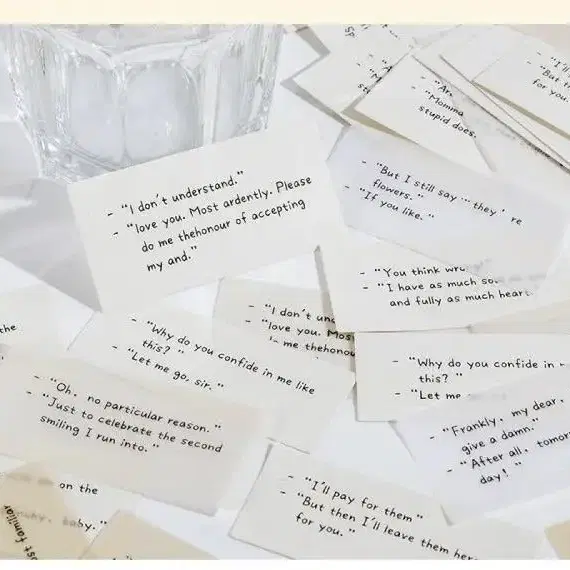 - "I don't understand."
- "love you. Most ardently. Please
do me thehonour of accepting
my and."
- "Ar.
- "Momma
stupid does.
for you.
- "But I still say ... they ' re
flowers. "
- "If you like. "
- "You think
- "I have as much
and fully as much heart.
- "I don't
- "love you.
me thehonou
the
- "Why do you confide in me like
this? "
- "Let me go, sir. "
- "Why do you confide in
this? "
- "Let me
- "Oh, no particular reason. "
- "Just to celebrate the second
smiling I run into. "
- "Frankly, my dear,
give a damn."
- "After all, tomor
day! "
on the
baby. "
- "I'll pay for them "
- "But then I'll leave them her
for you. "